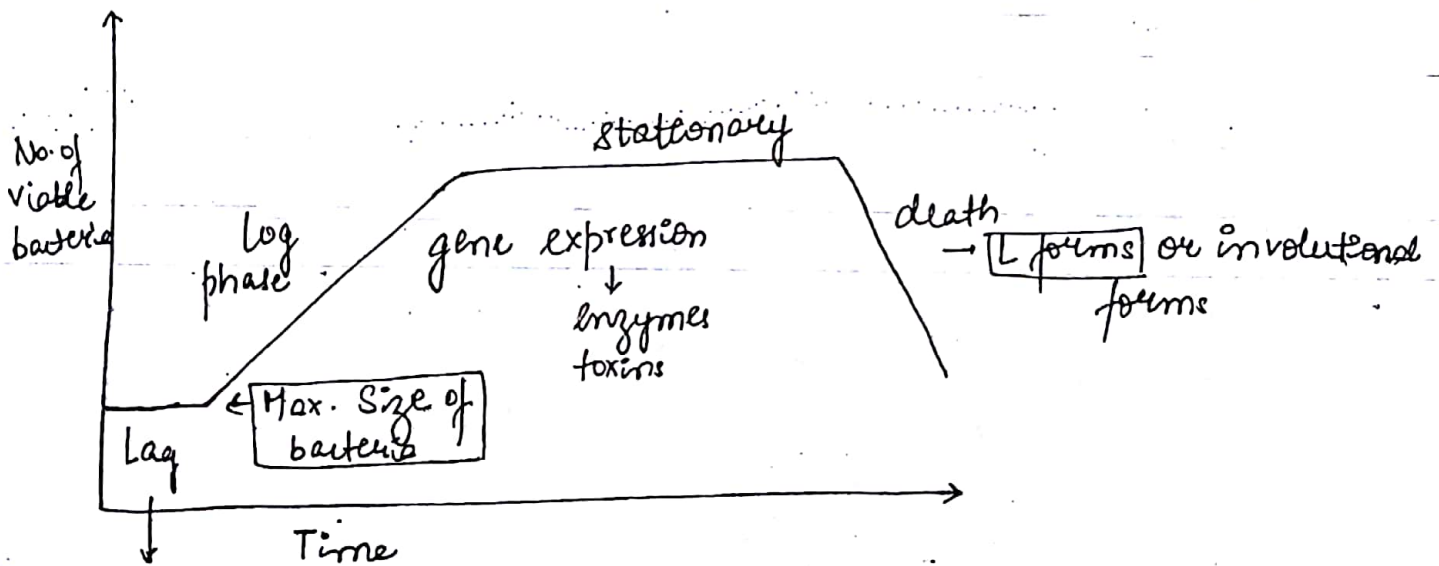 No. of
viable
bacteria
Log
phase
stationary
gene expression
↓
enzymes
toxins
death
→ L forms or involutional
forms
← Max. Size of
bacteria
Lag
↓
Time